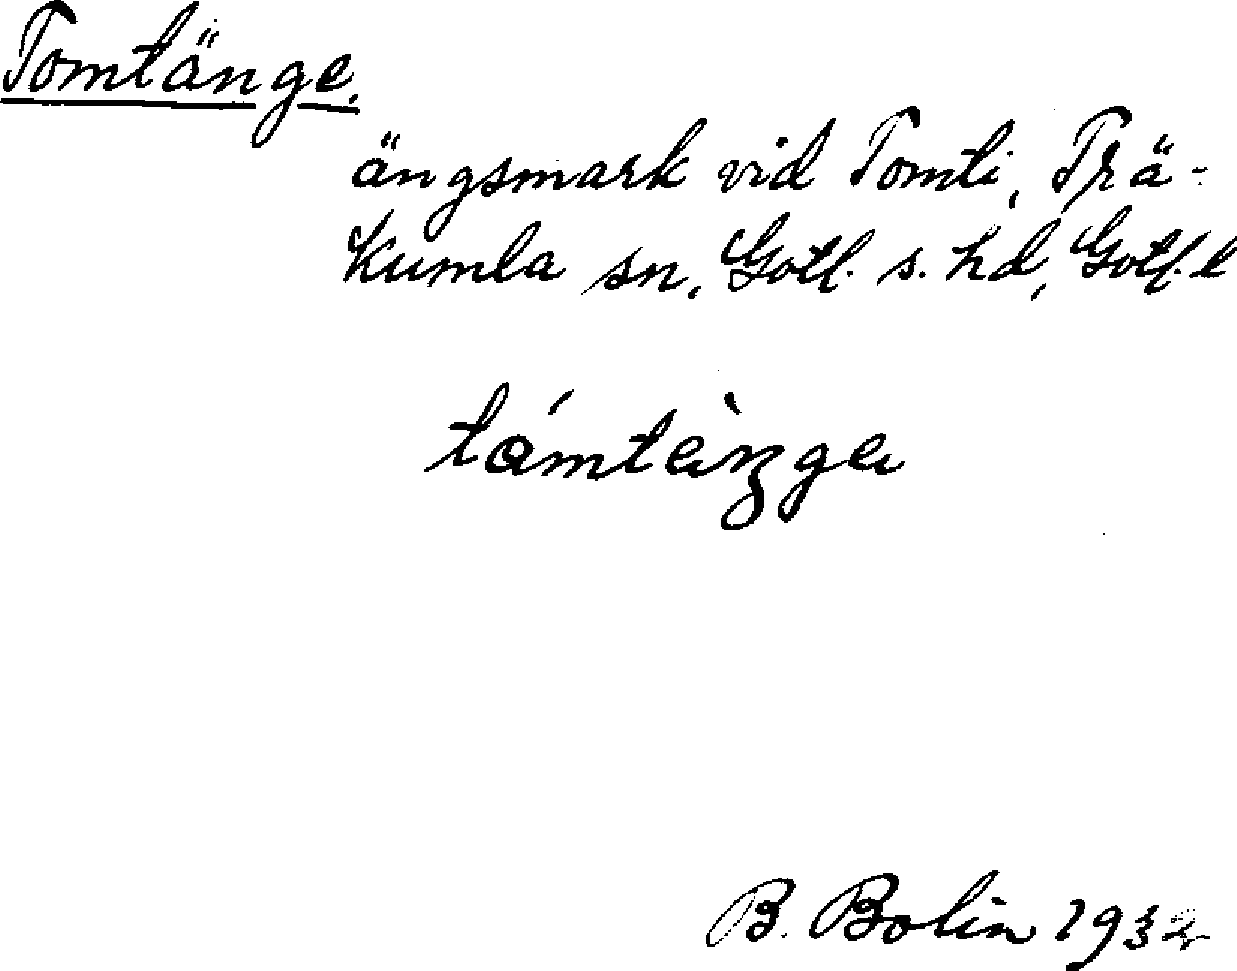 Tomtänge.
ängsmark vid Tomti, Trä-
kumla sn, Gotl. s. hd, Gotl. l
B. Bolin 1932